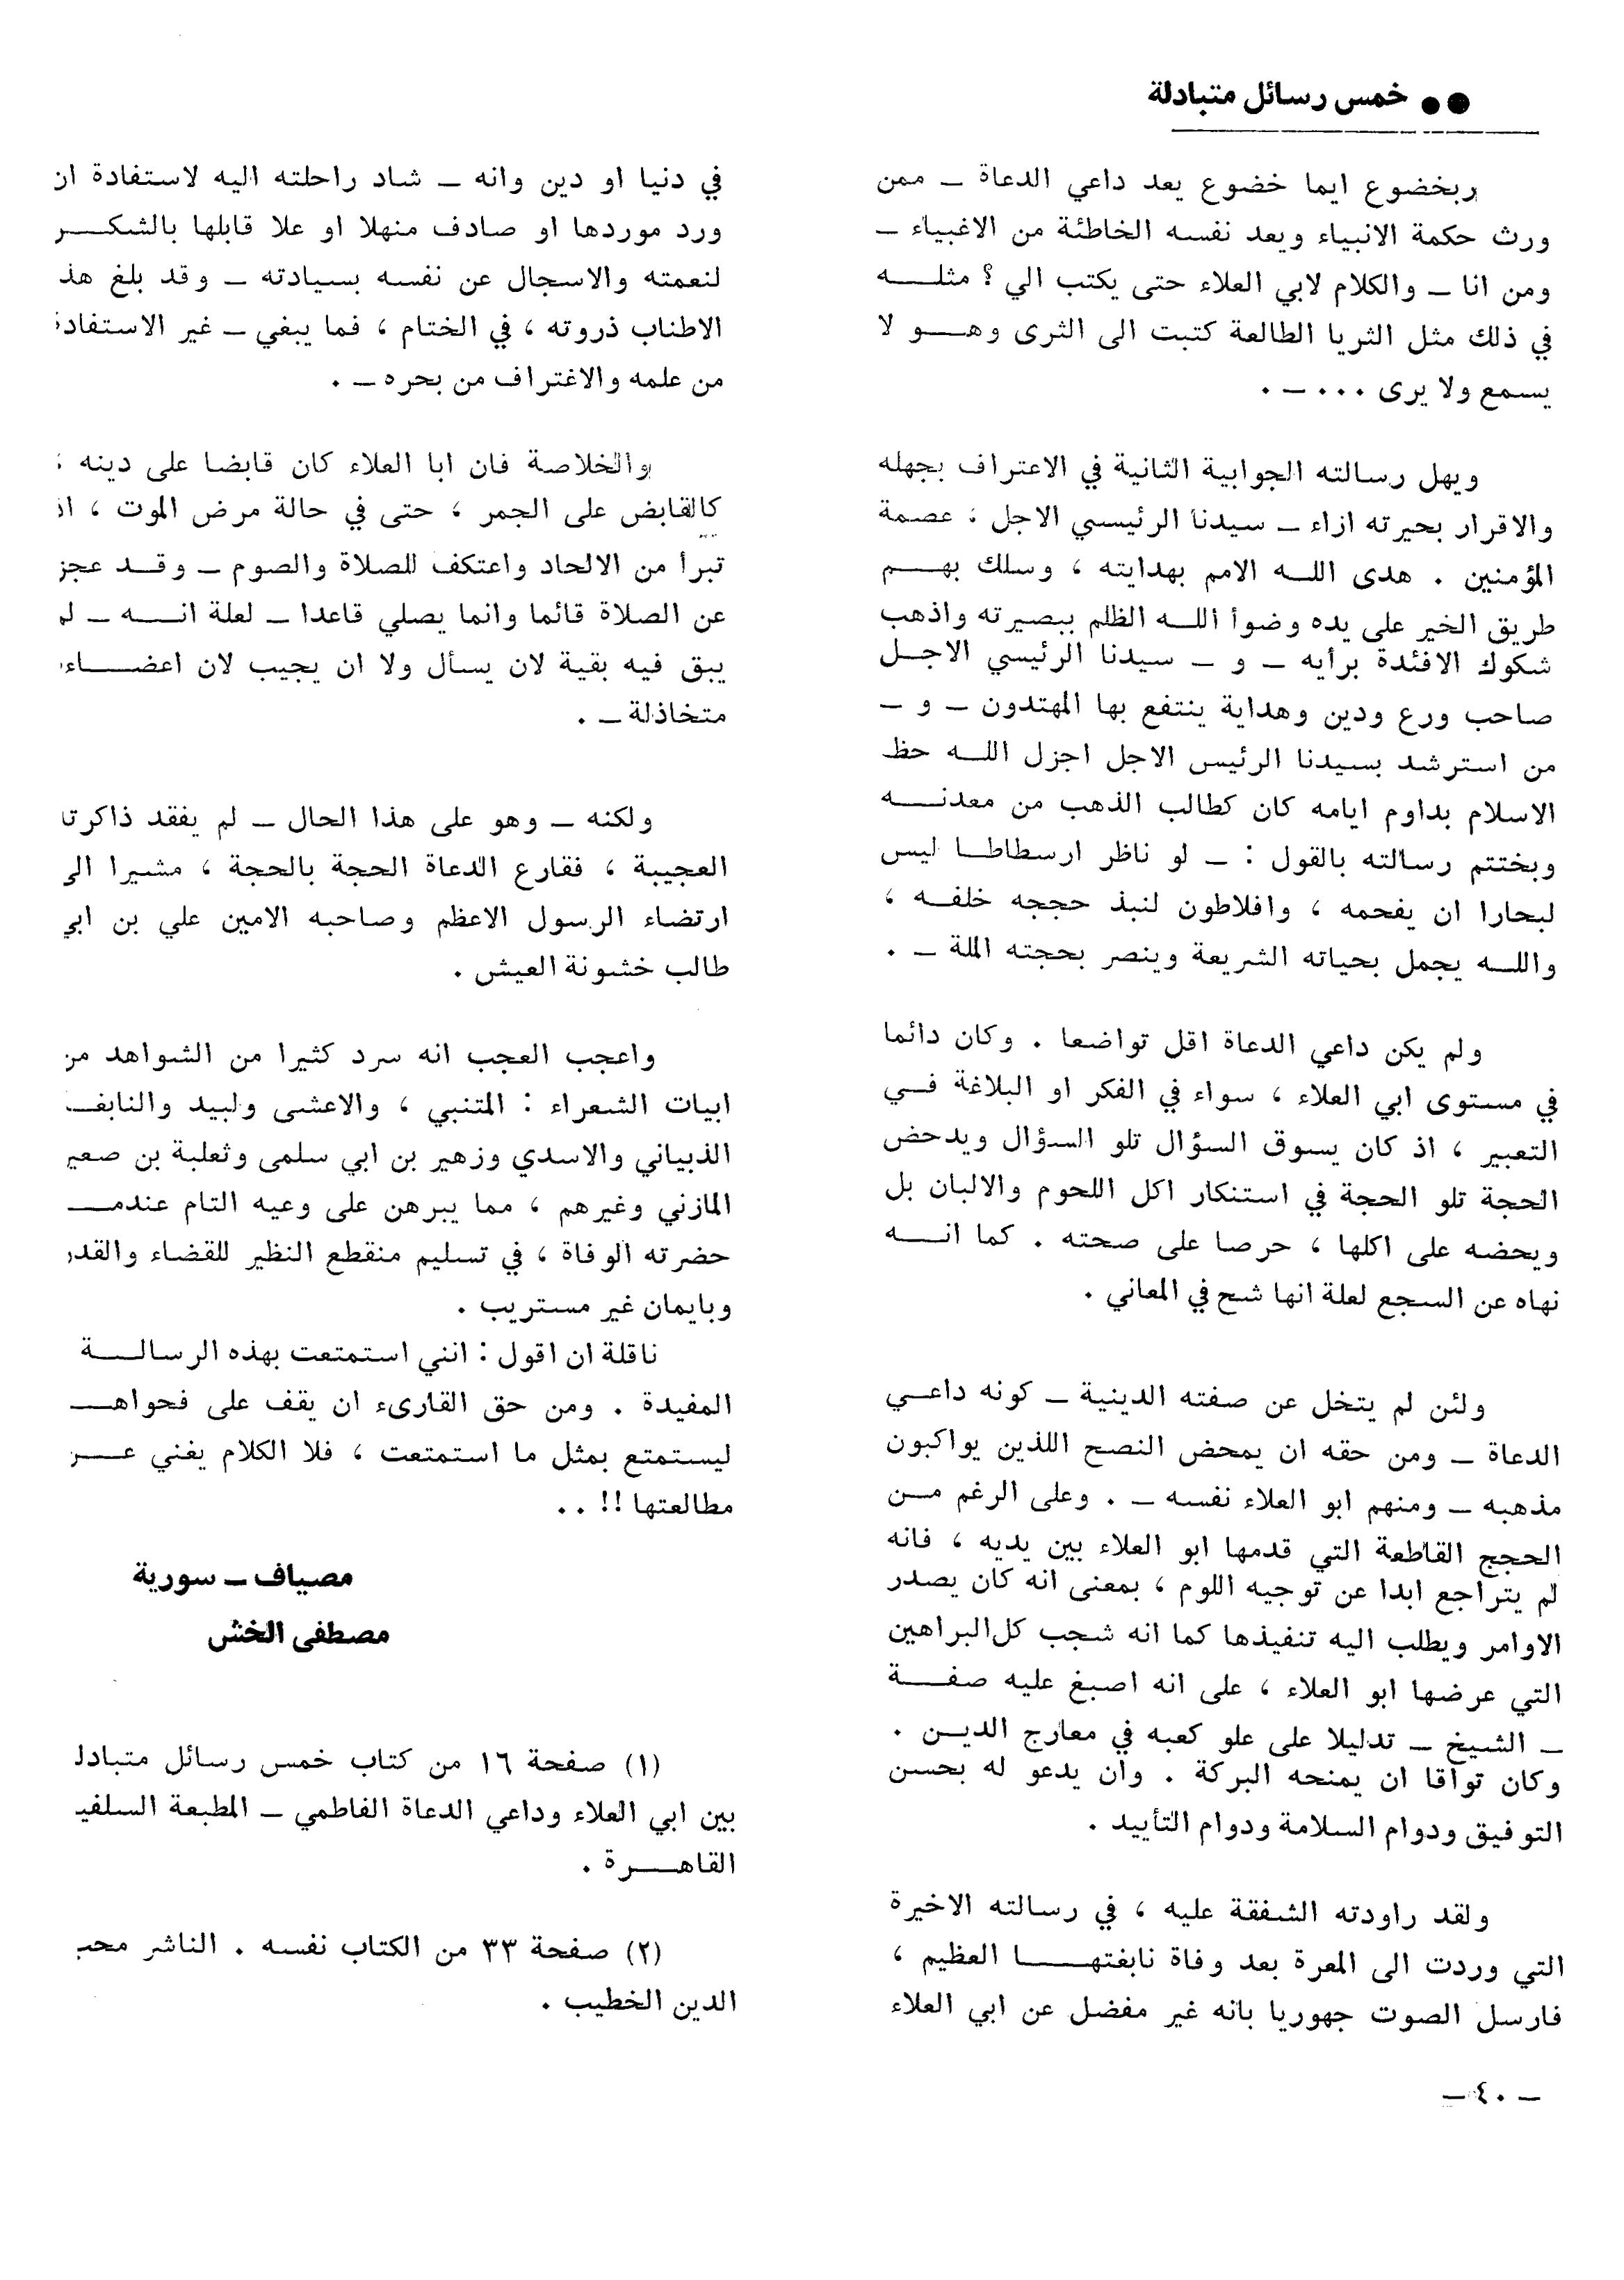 ●● خمس رسائل متبادلة
ربخضوع ايما خضوع يعد داعي الدعاة ــ ممن
ورث حكمة الانبياء ويعد نفسه الخاطئة من الاغبياء ــ
ومن انا ــ والكلام لابي العلاء حتى يكتب الي ؟ مثلــــه
في ذلك مثل الثريا الطالعة كتبت الى الثرى وهـــو لا
يسمع ولا يرى ٠٠٠ ــ ٠
ويهل رسالته الجوابية الثانية في الاعتراف بجهله
والاقرار بحيرته ازاء ــ سيدنا الرئيسي الاجل ؛ عصمة
المؤمنين . هدى اللــه الامم بهدايته ، وسلك بهـــم
طريق الخير على يده وضوأ اللــه الظلم ببصيرته واذهب
شكوك الافئدة برأيه ــ و ــ سيدنا الرئيسي الاجــل
صاحب ورع ودين وهداية ينتفع بها المهتدون ــ و ــ
من استرشد بسيدنا الرئيس الاجل اجزل اللــه حظ
الاسلام بداوم ايامه كان كطالب الذهب من معدنــــه
ويختتم رسالته بالقول : ــ لو ناظر ارسطاطــا ليس
لبحارا ان يفحمه ، وافلاطون لنبذ حججه خلفــه ،
واللــه يجمل بحياته الشريعة وينصر بحجته الملة ــ .
ولم يكن داعي الدعاة اقل تواضعا . وكان دائما
في مستوى ابي العلاء ، سواء في الفكر او البلاغة فـــي
التعبير ، اذ كان يسوق السؤال تلو السؤال ويدحض
الحجة تلو الحجة في استنكار اكل اللحوم والالبان بل
ويحضه على اكلها ، حرصا على صحته . كما انــــه
نهاه عن السجع لعلة انها شح في المعاني .
ولئن لم يتخل عن صفته الدينية ــ كونه داعــي
الدعاة ــ ومن حقه ان يمحض النصح اللذين يواكبون
مذهبه ــ ومنهم ابو العلاء نفسه ــ . وعلى الرغم مــن
الحجج القاطعة التي قدمها ابو العلاء بين يديه ، فانه
لم يتراجع ابدا عن توجيه اللوم ، بمعنى انه كان يصدر
الاوامر ويطلب اليه تنفيذها كما انه شجب كل البراهين
التي عرضها ابو العلاء ، على انه اصبغ عليه صفـــة
ــ الشيخ ــ تدليلا على علو كعبه في معارج الديــن .
وكان تواقا ان يمنحه البركة . وان يدعو له بحسن
التوفيق ودوام السلامة ودوام التأييد .
ولقد راودته الشفقة عليه ، في رسالته الاخيرة
التي وردت الى المعرة بعد وفاة نابغتهـــــا العظيم ،
فارسل الصوت جهوريا بانه غير مفضل عن ابي العلاء
في دنيا او دين وانه ــ شاد راحلته اليه لاستفادة ان
ورد موردها او صادف منهلا او علا قابلها بالشكـــر
لنعمته والاسجال عن نفسه بسيادته ــ وقد بلغ هذ
الاطناب ذروته ، في الختام ، فما يبغي ــ غير الاستفادة
من علمه والاغتراف من بحره ــ .
والخلاصة فان ابا العلاء كان قابضا على دينه ؛
كالقابض على الجمر ، حتى في حالة مرض الموت ، اذ
تبرأ من الالحاد واعتكف للصلاة والصوم ــ وقــد عجز
عن الصلاة قائما وانما يصلي قاعدا ــ لعلة انــــه ــ لم
يبق فيه بقية لان يسأل ولا ان يجيب لان اعضــــاءه
متخاذلة ــ .
ولكنه ــ وهو على هذا الحال ــ لم يفقد ذاكرتا
العجيبة ، فقارع الدعاة الحجة بالحجة ، مشيرا الى
ارتضاء الرسول الاعظم وصاحبه الامين علي بن ابي
طالب خشونة العيش .
واعجب العجب انه سرد كثيرا من الشواهد من
ابيات الشعراء : المتنبي ، والاعشى ولبيد والنابغــ
الذبياني والاسدي وزهير بن ابي سلمى وثعلبة بن صعير
المازني وغيرهم ، مما يبرهن على وعيه التام عندمـــ
حضرته الوفاة ، في تسليم منقطع النظير للقضاء والقدر
وبايمان غير مستريب .
ناقلة ان اقول : انني استمتعت بهذه الرسالــــة
المفيدة . ومن حق القارىء ان يقف على فحواهـــ
ليستمتع بمثل ما استمتعت ، فلا الكلام يغني عـــن
مطالعتها !! . .
مصياف ــ سورية
مصطفى الخش
(١) صفحة ١٦ من كتاب خمس رسائل متبادل
بين ابي العلاء وداعي الدعاة الفاطمي ــ المطبعة السلفي
القاهـــــرة .
(٢) صفحة ٣٣ من الكتاب نفسه . الناشر محب
الدين الخطيب .
ــ ٤٠ ــ